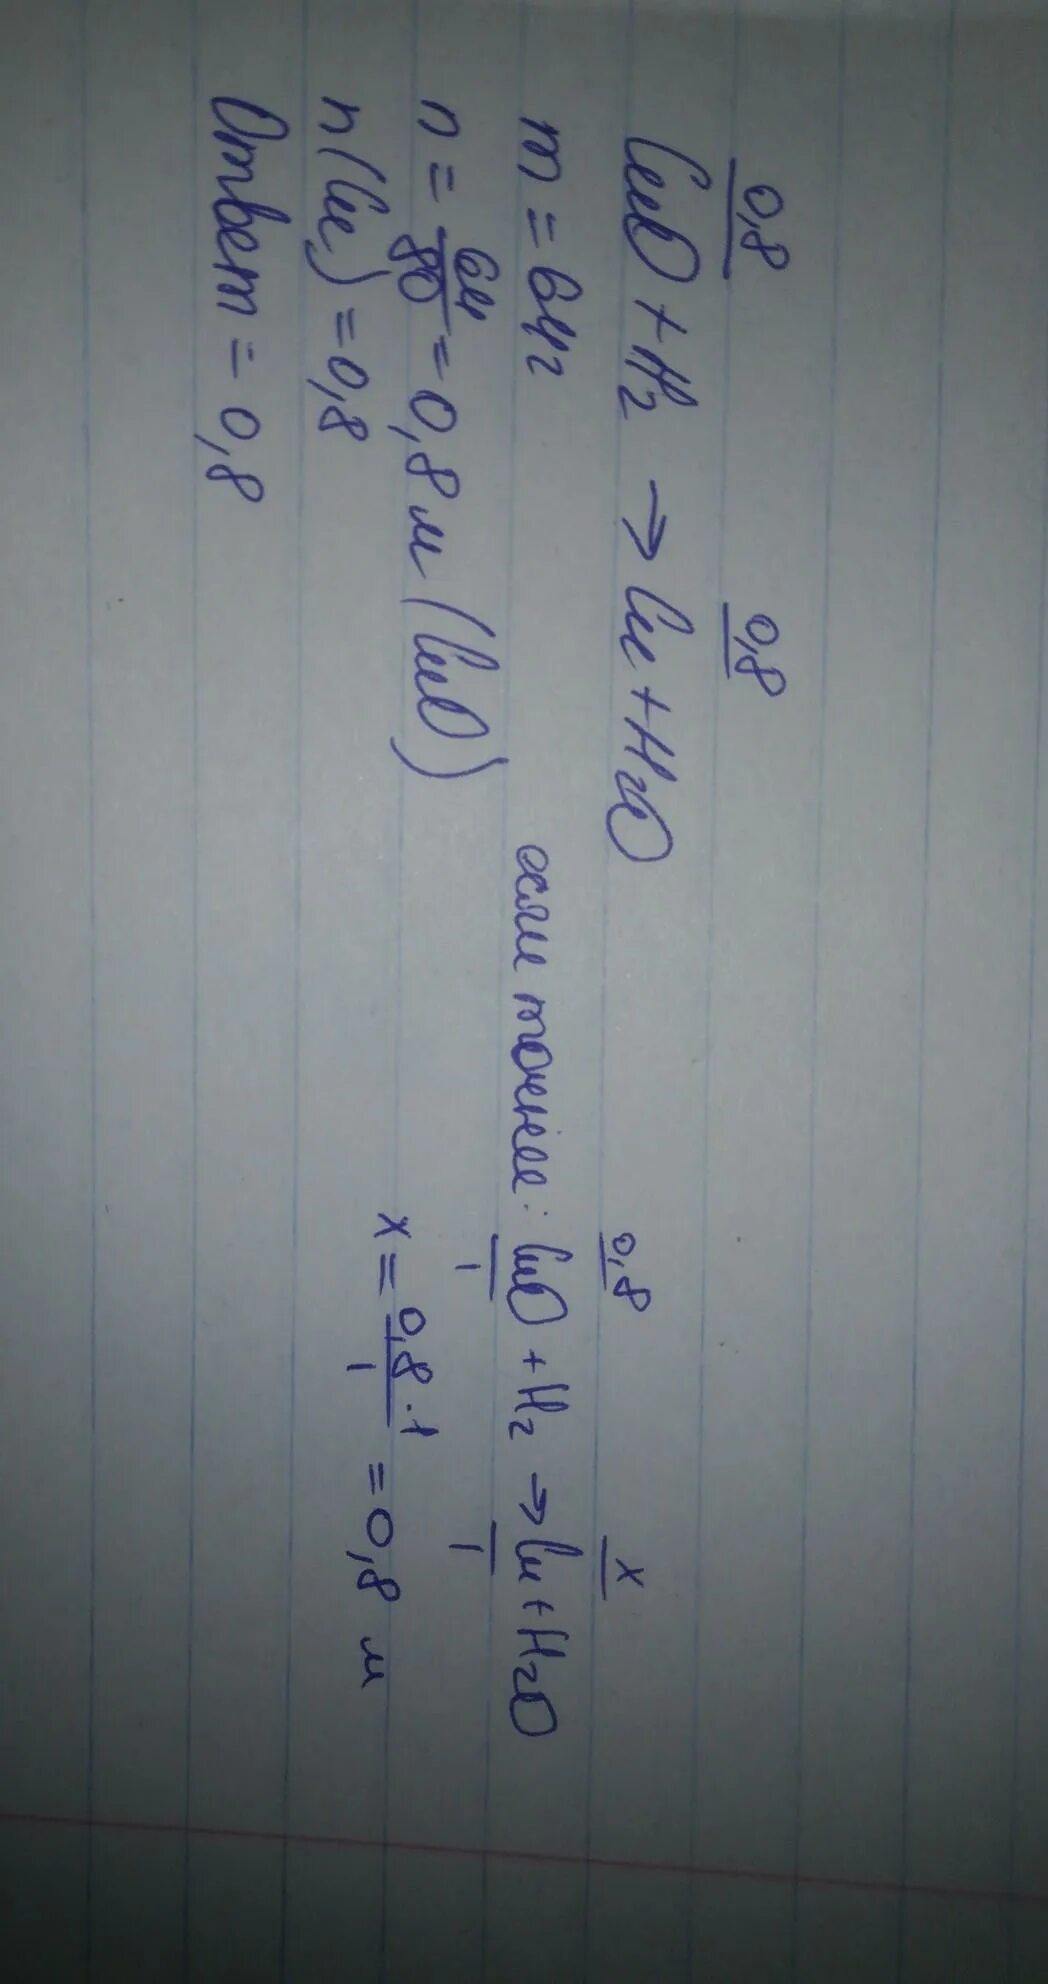 0,8 0,8
CuO + H2 → Cu + H2O
m = 64г
n = 64/80 = 0,8 м (CuO)
n (Cu) = 0,8
Ответ = 0,8
0,8 x
если точнее: CuO + H2 → Cu + H2O
1 1
x = 0,8 · 1 / 1 = 0,8 м